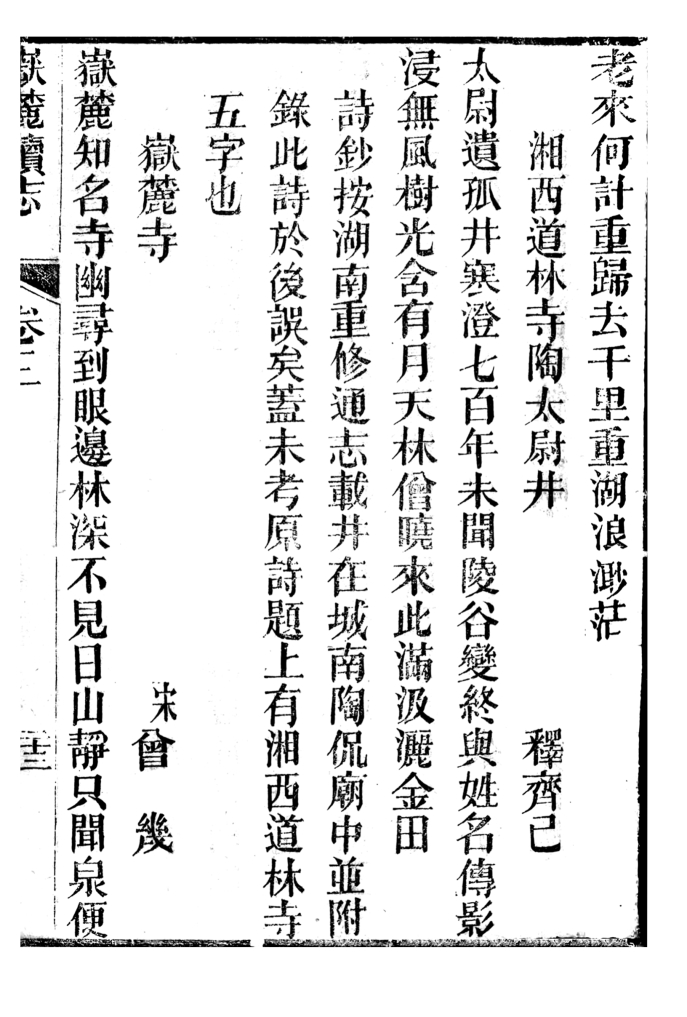 老來何計重歸去千里重湖浪渺茫
湘西道林寺陶太尉井　釋齊己
太尉遺孤井寒澄七百年未聞陵谷變終與姓名傳影
浸無風樹光含有月天林僧曉來此滿汲灑金田
詩鈔按湖南重修通志載井在城南陶侃廟中並附
錄此詩於後誤矣蓋未考原詩題上有湘西道林寺
五字也
嶽麓寺　宋曾幾
嶽麓知名寺幽尋到眼邊林深不見日山靜只聞泉便
嶽麓續志　卷三　二十三